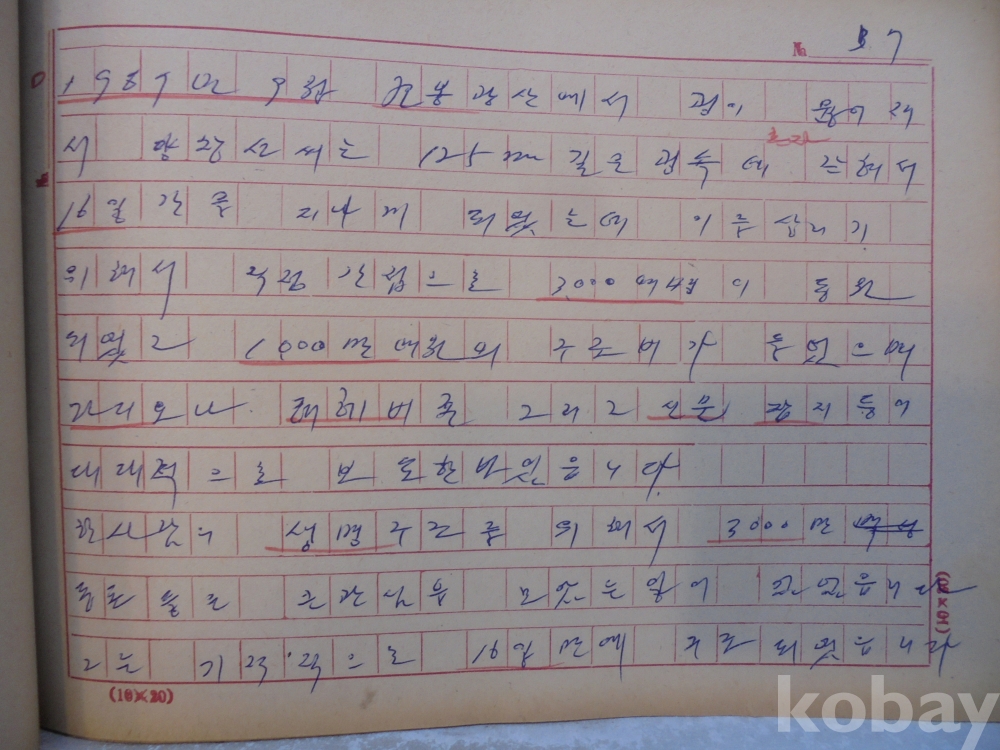 № 37
1967년 8월 구봉광산에서 갱이 무너져
서 양창선씨는 125m 깊은 갱속에 관해서
16일간을 지나게 되었는데 이를 살리기
위해서 직접 간접으로 3000여명이 동원
되었고 1000만여원의 구조비가 들었으며
라디오나 테레비죤 그리고 신문, 잡지등이
대대적으로 보도한바 있읍니다.
한사람의 생명구조를 위해서 3000만
동포들로 큰 관심을 모았든일이 있었읍니다
그는 기적적으로 16일만에 구조되었읍니다
(10×20)
(10×20)
kobay